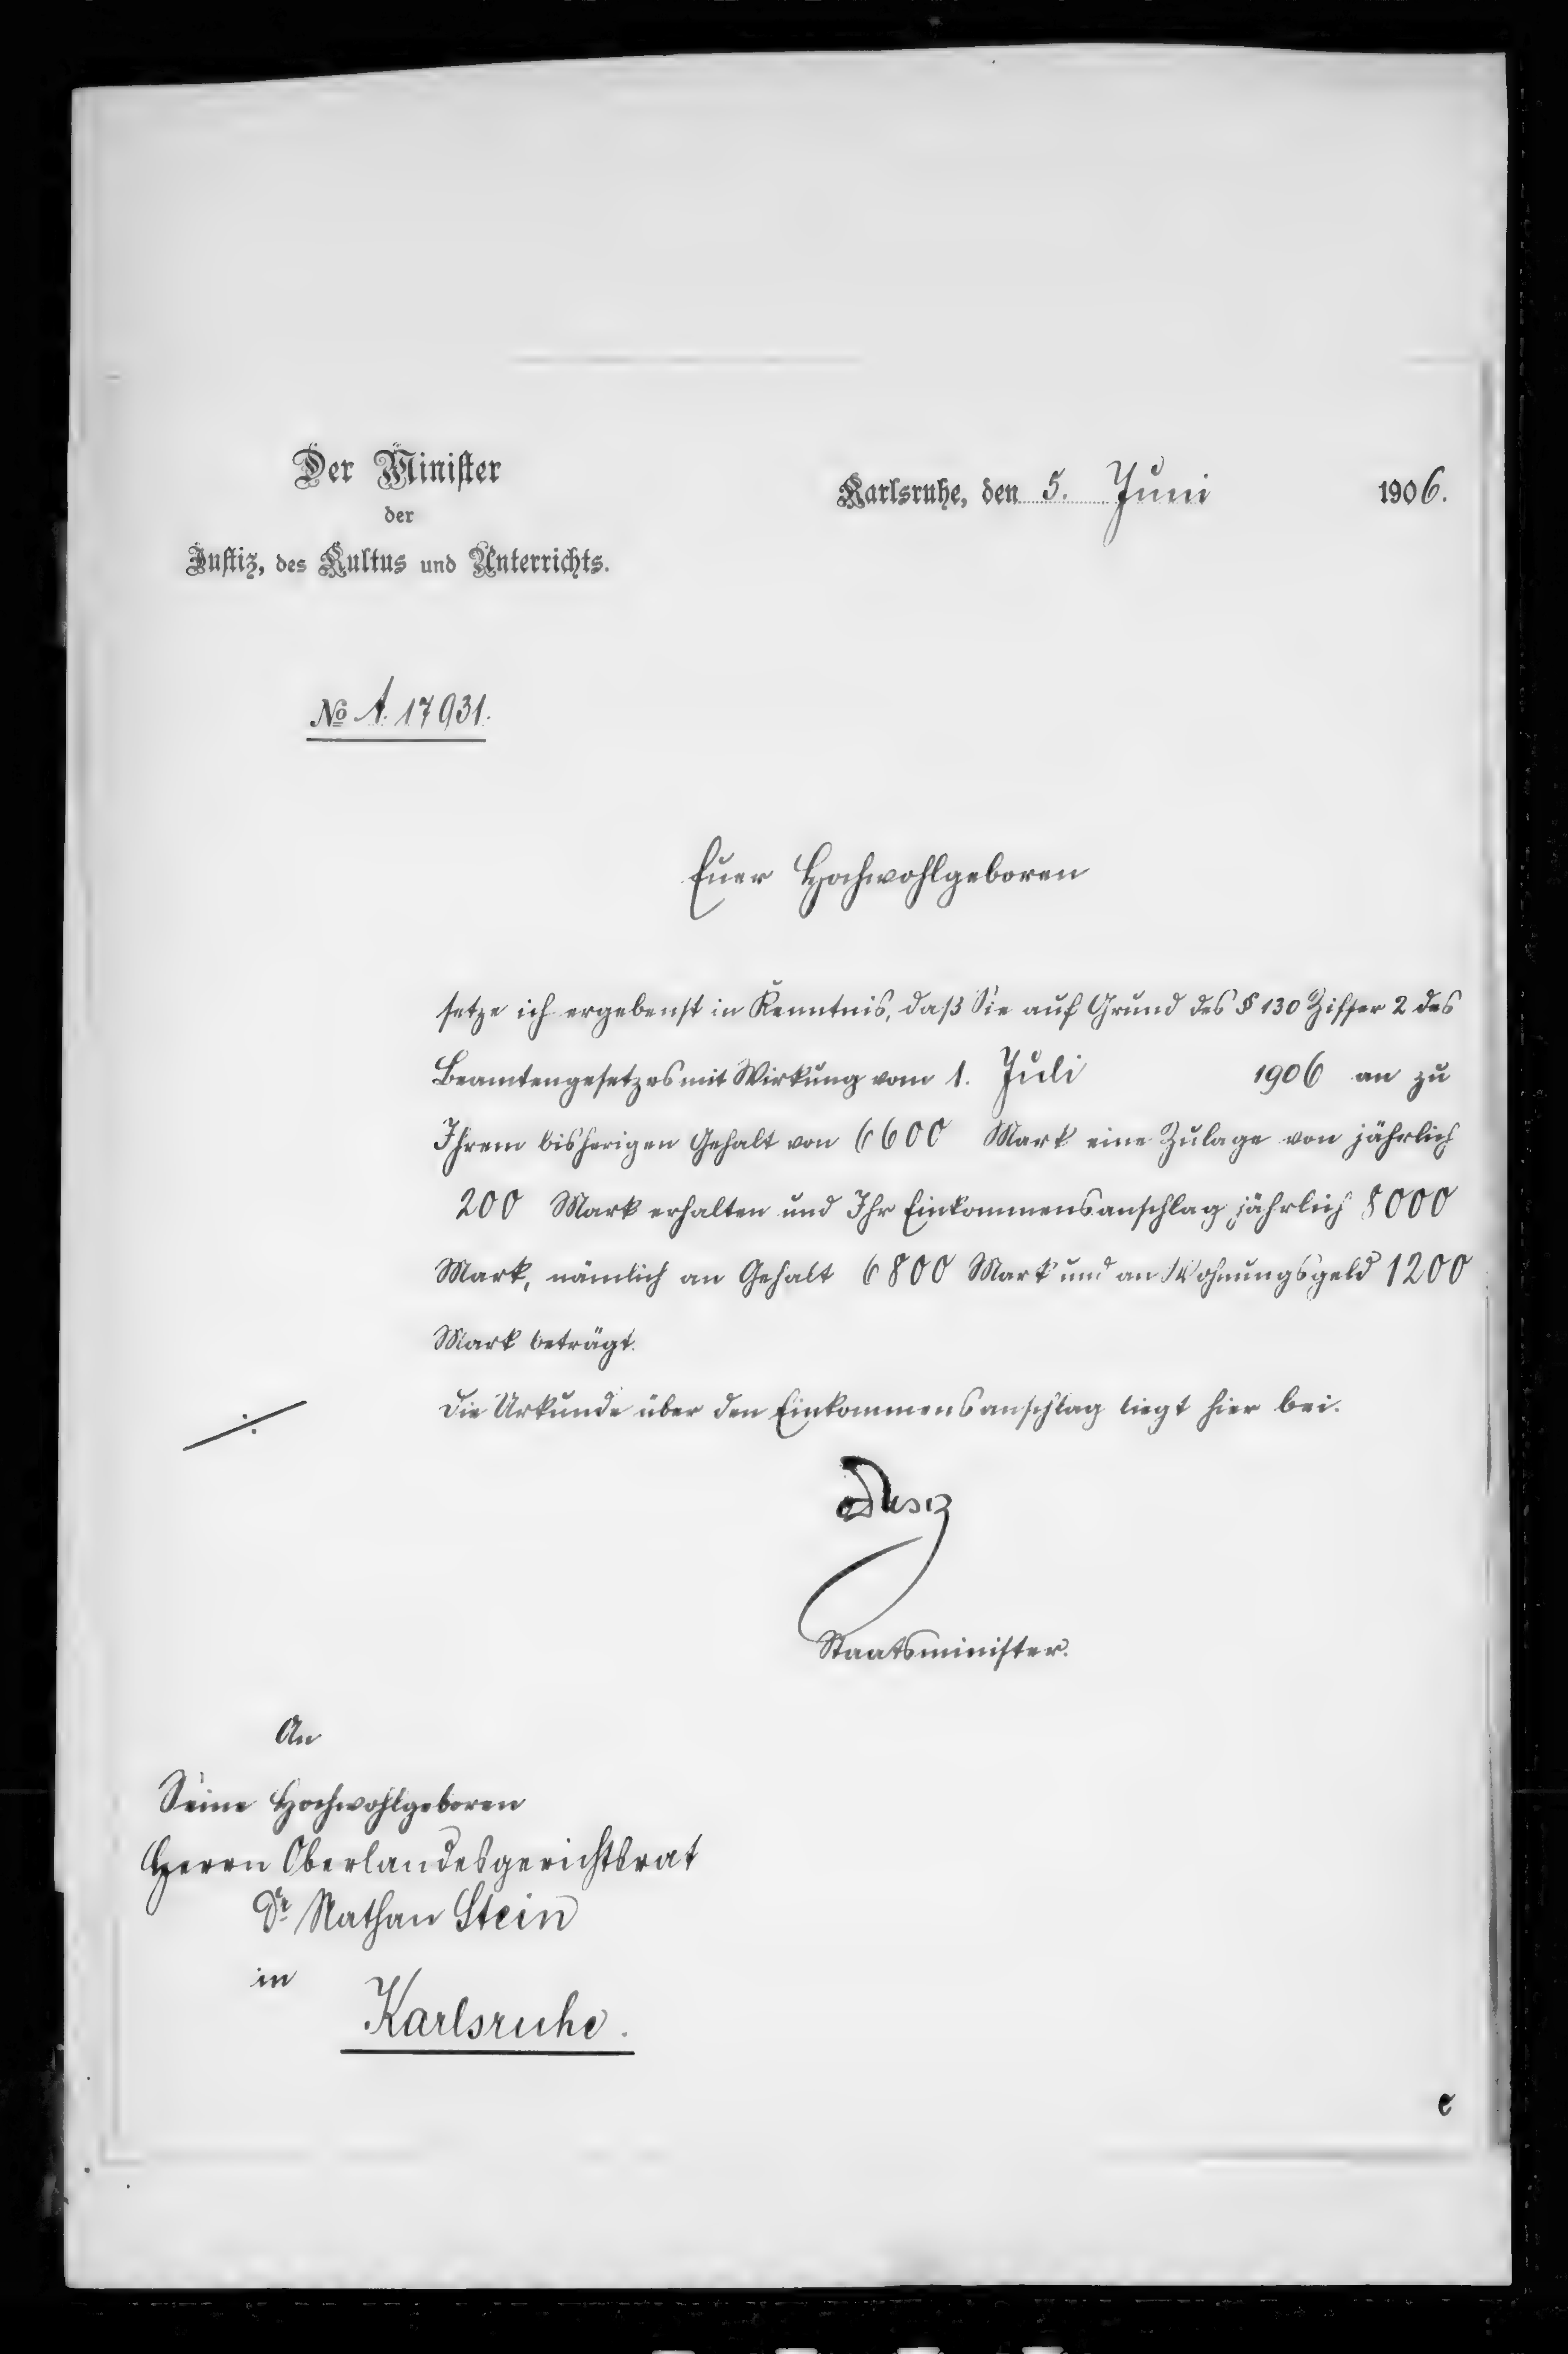 Der Minister
der
Justiz, des Kultus und Unterrichts.
Karlsruhe, den 5. Juni 1906.
No A. 17931.
Euer Hochwohlgeboren
setze ich ergebenst in Kenntnis, daß Sie auf Grund des § 130 Ziffer 2 des
Beamtengesetzes mit Wirkung vom 1. Juli 1906 an zu
Ihrem bisherigen Gehalt von 6600 Mark eine Zulage von jährlich
200 Mark erhalten und Ihr Einkommensanschlag jährlich 8000
Mark, nämlich an Gehalt 6800 Mark und an Wohnungsgeld 1200
Mark beträgt.
Die Urkunde über den Einkommensanschlag liegt hier bei.
Staatsminister.
An
Seine Hochwohlgeboren
Herrn Oberlandesgerichtsrat
Dr. Nathan Stein
in
Karlsruhe.